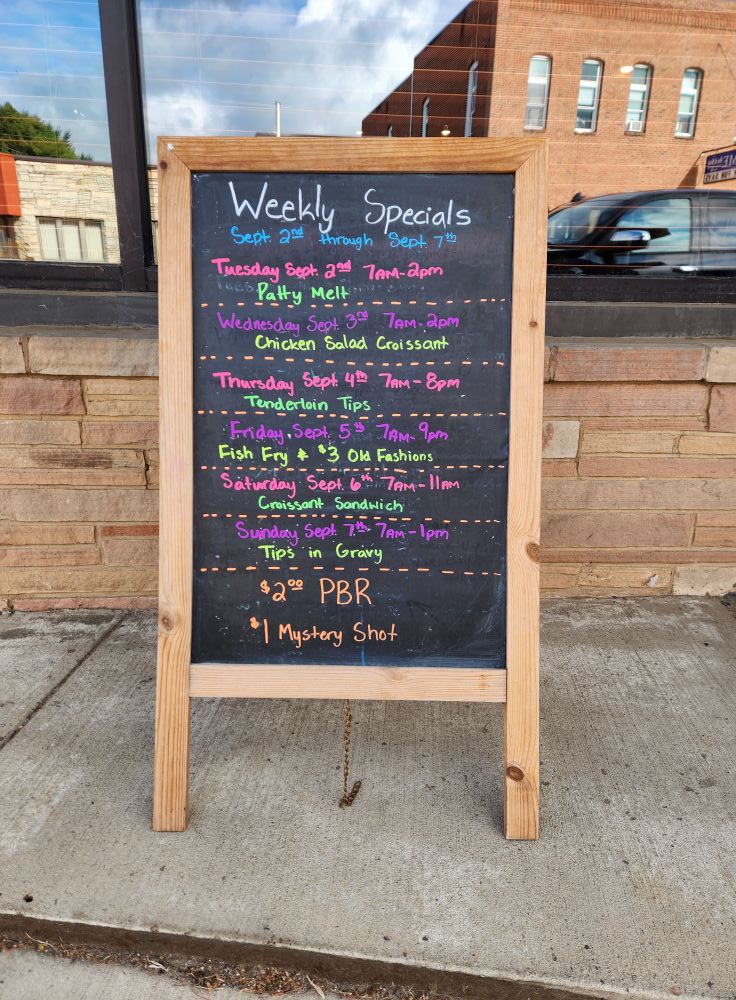 Weekly Specials
Sept. 2nd through Sept. 7th
Tuesday Sept. 2nd 7AM-2pm
Patty Melt
Wednesday Sept. 3rd 7AM-2pm
Chicken Salad Croissant
Thursday Sept 4th 7AM-8pm
Tenderloin Tips
Friday, Sept. 5th 7AM-9pm
Fish Fry & $3 Old Fashions
Saturday Sept. 6th 7AM-11AM
Croissant Sandwich
Sunday Sept. 7th 7AM-1pm
Tips in Gravy
$2.00 PBR
$1 Mystery Shot